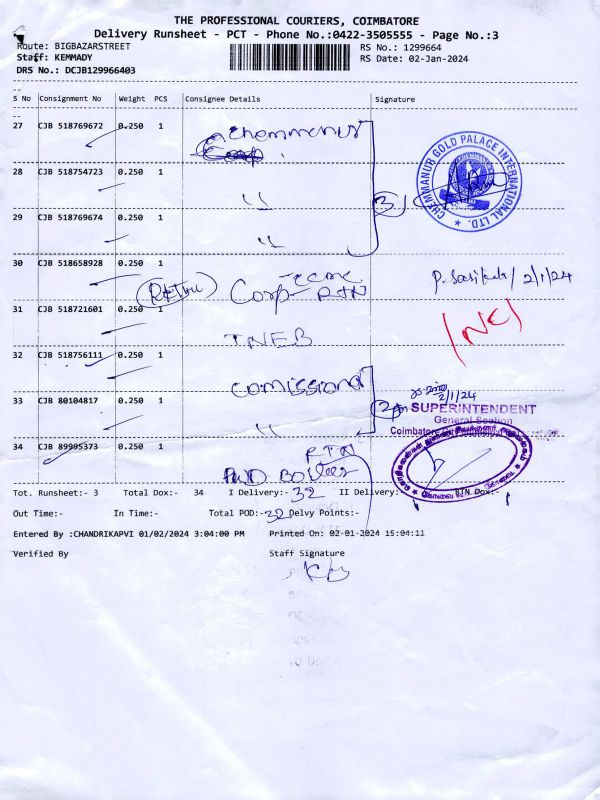 THE PROFESSIONAL COURIERS, COIMBATORE
Delivery Runsheet - PCT - Phone No.:0422-3505555 - Page No.:3
Route: BIGBAZARSTREET
RS No.: 1299664
Staff: KEMMADY
RS Date: 02-Jan-2024
DRS No.: DCJB129966403
S No Consignment No Weight PCS Consignee Details Signature
27 CJB 518769672 0.250 1
28 CJB 518754723 0.250 1 "
29 CJB 518769674 0.250 1 "
CHEMMANUR GOLD PALACE INTERNATIONAL LTD.
30 CJB 518658928 0.250 1
Corp- RTN
2/1/24
31 CJB 518721601 0.250 1 TNEB
(NC)
32 CJB 518756111 0.250 1
2/1/24
33 CJB 80104817 0.250 1 "
SUPERINTENDENT
General Section
Coimbatore
34 CJB 89995373 0.250 1
RTN
PWD
Tot. Runsheet:- 3 Total Dox:- 34 I Delivery:- 32 II Delivery:- RTN Dox:-
Out Time:- In Time:- Total POD:- 32 Delvy Points:-
Entered By :CHANDRIKAPVI 01/02/2024 3:04:00 PM Printed On: 02-01-2024 15:04:11
Verified By Staff Signature